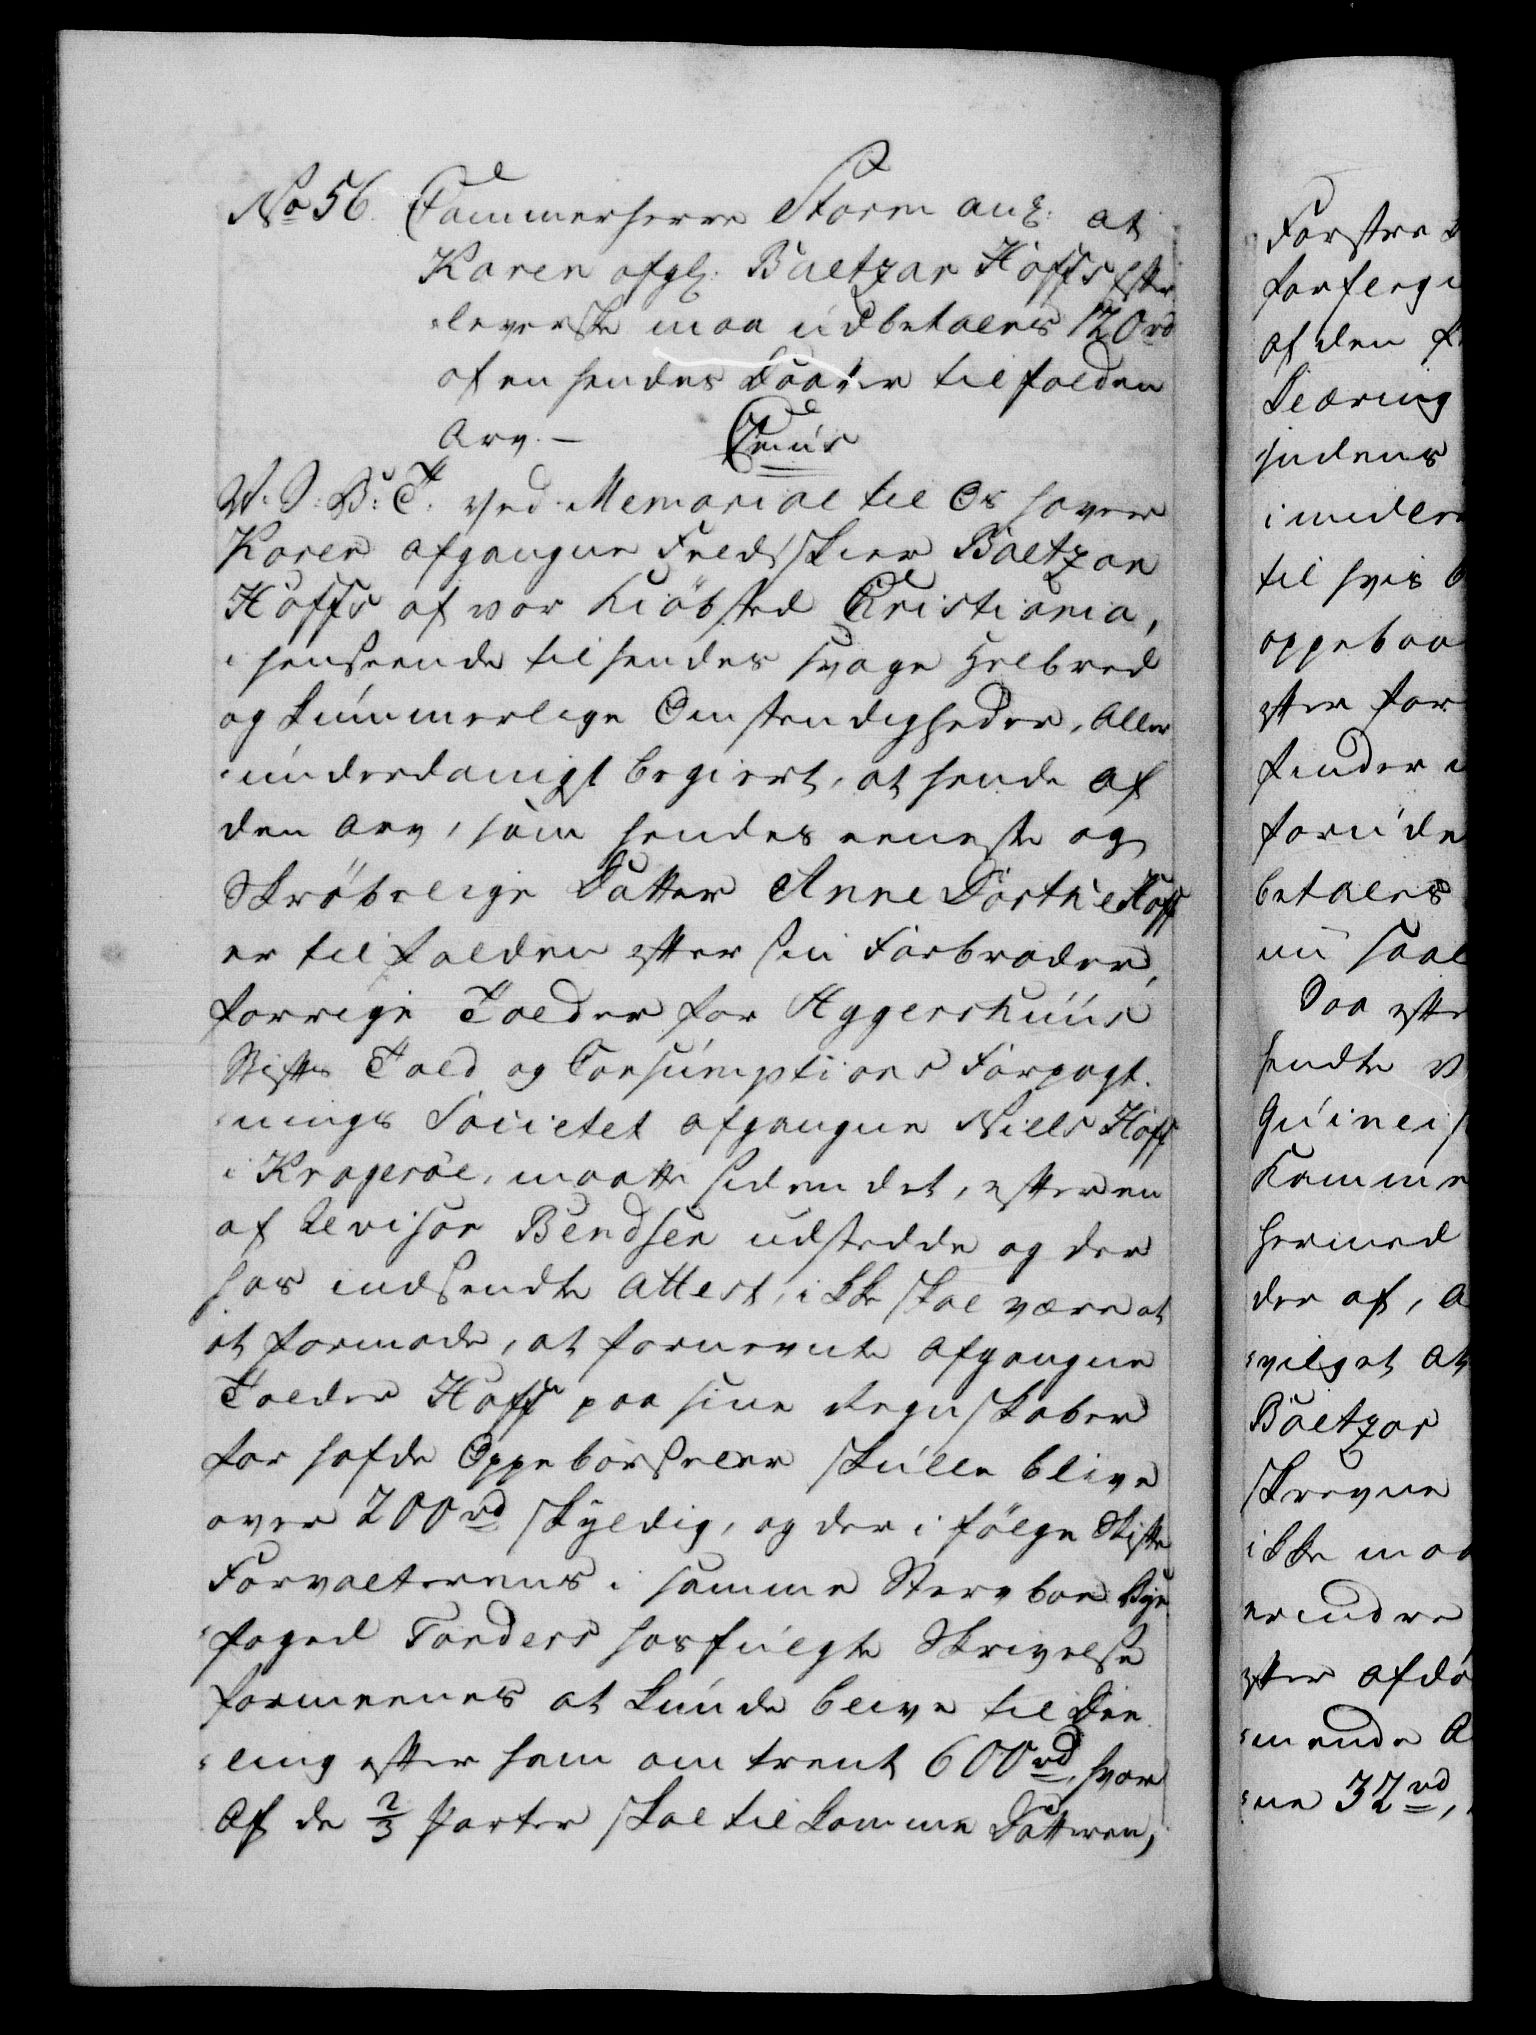 No 56. Cammerherre Storm ang: at
Karen afgl: Baltzar Hoffs Efter
=leverske maa udbetales 120 rd
af en hendes Daatter tilfalden
Arv. —
W: G: B: T: Ved Memorial til Os haver
Karen afgangne Feldskier Baltzar
Hoffs af vor Kiöbsted Christiania,
i henseende til hendes svage Helbred
og kummerlige Omstendigheder, Aller
=underdanigst begiert, at hende af
den Arv, som hendes eeneste og
Skröbelige Datter Anne Dorthe Hoff
er tilfalden efter sin Farbroder,
forrige Tolder for Aggershuus
Stifts Told og Consumptions Forpagt
=nings Societet afgangne Niels Hoff
i Krageröe, maatte siden det, efter en
af Revisor Bendsen udstedde og der
hos indsendte Attest, ikke skal være at
at formode, at fornevnte Afgangne
Tolder Hoff paa sine Regnskaber
for hafde Oppebörseler skulle blive
over 200 rd skyldig, og der i fölge Skifte
Forvalterens i samme Sterboe Bye
=foged Tonders hosfulgte Skrivelse
formeenes at kunde blive til Dee
=ling efter ham omtrent 600 rd, hvor
Af de 2/3 Parter skal tilkomme Datteren,
Forstre
af den
Læring
sudens
imidler
til hvis
oppebaa
efter for
finder
foru de
betales
nu saal
Saa efte
sendte
Guineis
Kamme
hermed
der af, A
=vilget At
Baltzar
skrevne
ikke maa
erindre
efter afdö
=mende A
=ne 32 rd,